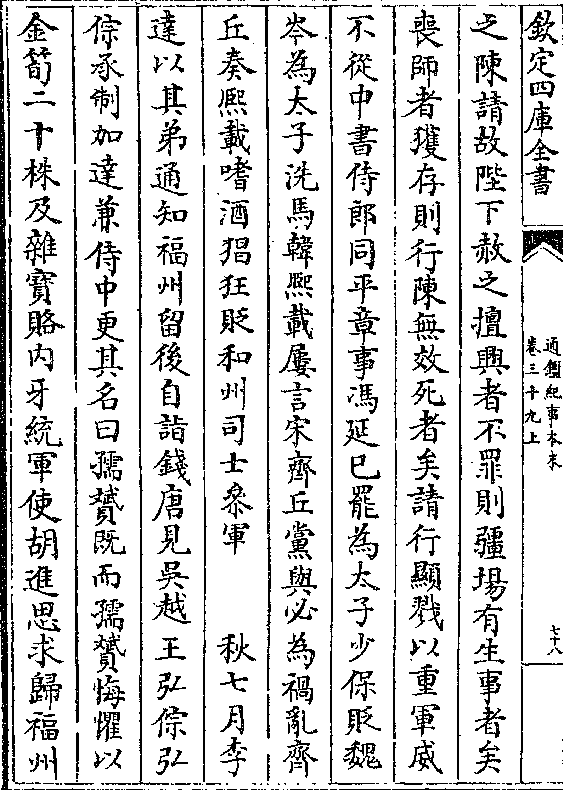 欽定四庫全書
通鑑紀事本末
卷三十九上
七十八
之陳請故陛下赦之擅興者不罪則疆場有生事者矣
喪師者獲存則行陳無效死者矣請行顯戮以重軍威
不從中書侍郎同平章事馮延巳罷為太子少保貶魏
岑為太子洗馬韓熙載屢言宋齊丘黨與必為禍亂齊
丘奏熙載嗜酒猖狂貶和州司士叅軍 秋七月李
達以其弟通知福州留後自詣錢唐見吳越王弘倧弘
倧承制加達兼侍中更其名曰孺贇既而孺贇悔懼以
金筍二十株及雜寶賂内牙統軍使胡進思求歸福州